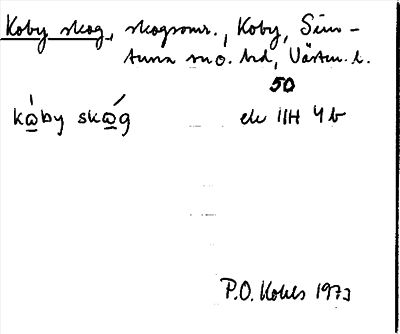 Koby skog, skogsomr., Koby, Sim-
tuna sn o. hd, Västm. l.
50
kώ̲by skώ̲g ek 11H 4b
P.O. Kohls 1973